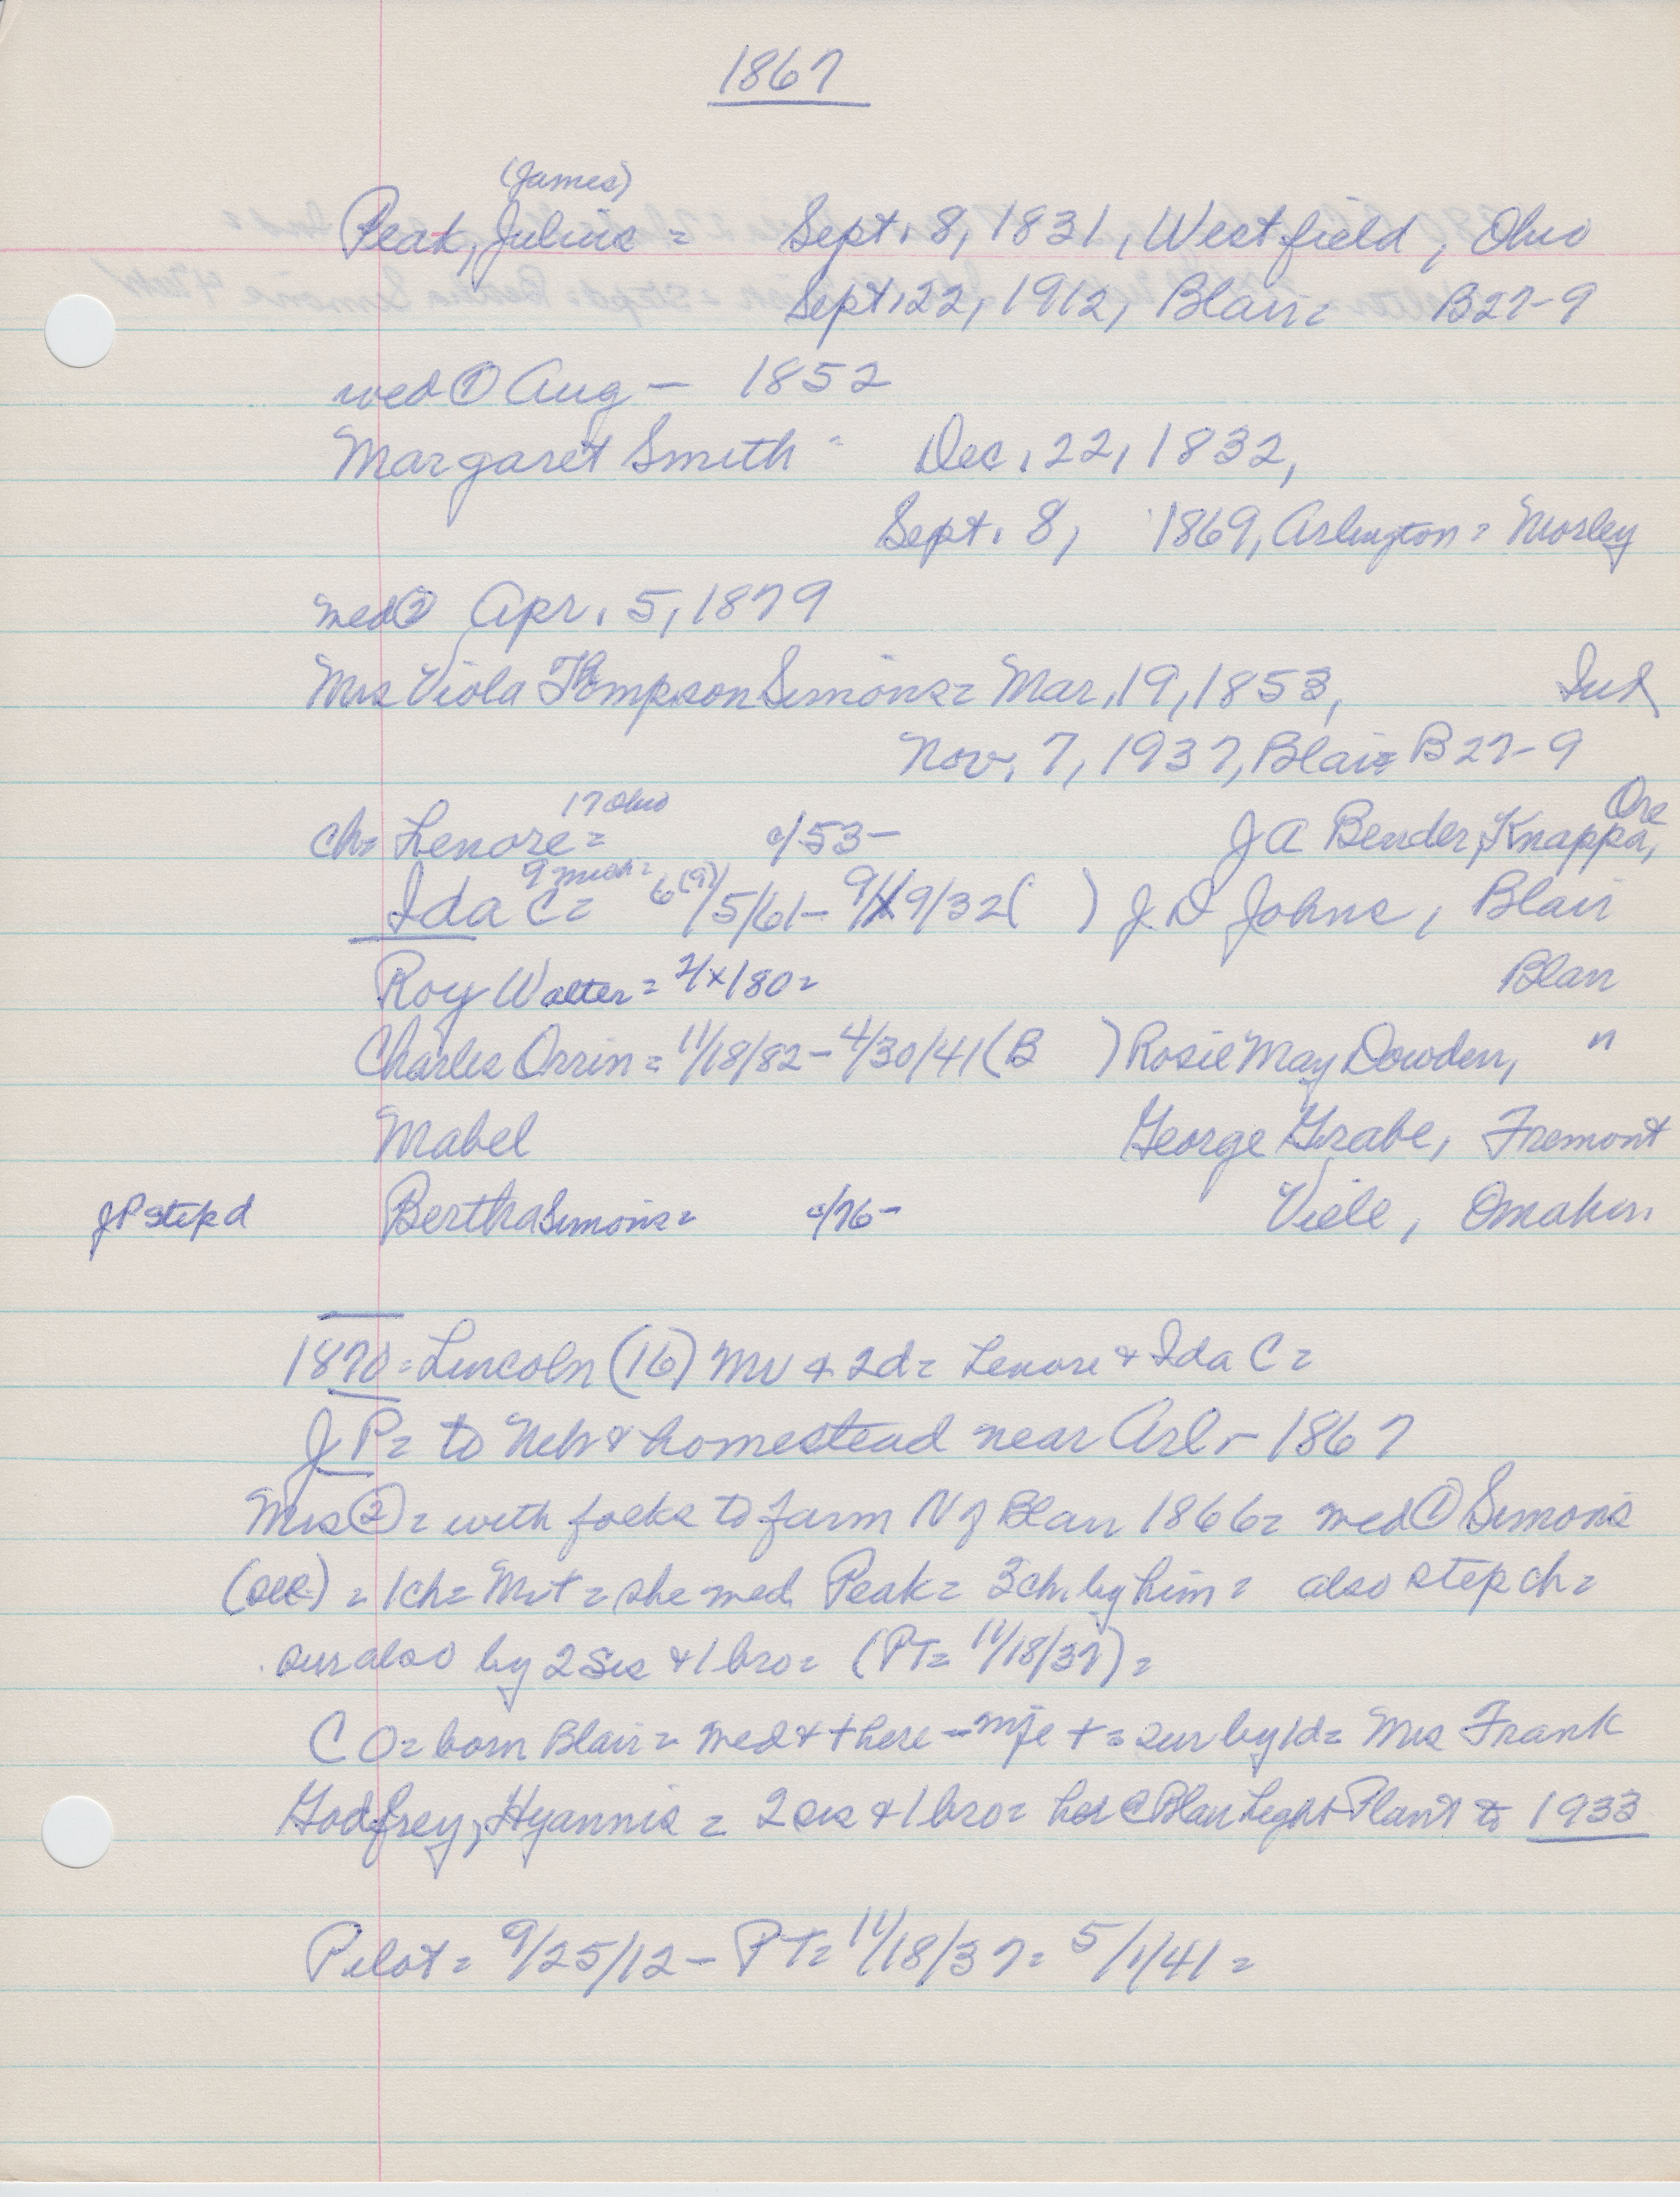 1867
(James)
Peak, Julius = Sept. 8, 1831, Westfield, Ohio
Sept. 22, 1912, Blair = B27-9
wed ① Aug — 1852
Margaret Smith = Dec. 22, 1832,
Sept. 8, 1869, Arlington = Morley
wed ② Apr. 5, 1879
Mrs Viola Thompson Simons = Mar. 19, 1853, Ind
Nov. 7, 1937, Blair = B27-9
17 Ohio Ore
ch = Lenore = c/53 - J A Bender, Knappa,
9 Mich =
Ida C = 6(9)/5/61 - 9/19/32 ( ) J. D Johns, Blair
Roy Walter = 180 = Blair
Charles Orrin = 11/18/82 - 4/30/41 (B ) Rosie May Dowden, "
Mabel George Grabe, Fremont
J P step d Bertha Simons = c/76 - Viele, Omaha.
1870 = Lincoln (16) & 2d = Lenore & Ida C =
J P = to Neb & homestead near Arl - 1867
Mrs ② = with folks to farm N of Blair 1866 = wed ① Simons
(dec) = 1ch = = she wed Peak = 3 ch. by him = also step ch =
sur also by 2 sis & 1 bro = (PT = 11/18/37) =
C O = born Blair = wed & there - t = sur by 1d = Mrs Frank
Godfrey, Hyannis = 2 sis & 1 bro = Blair Light Plant to 1933
Pilot = 9/25/12 - PT = 11/18/37 = 5/1/41 =